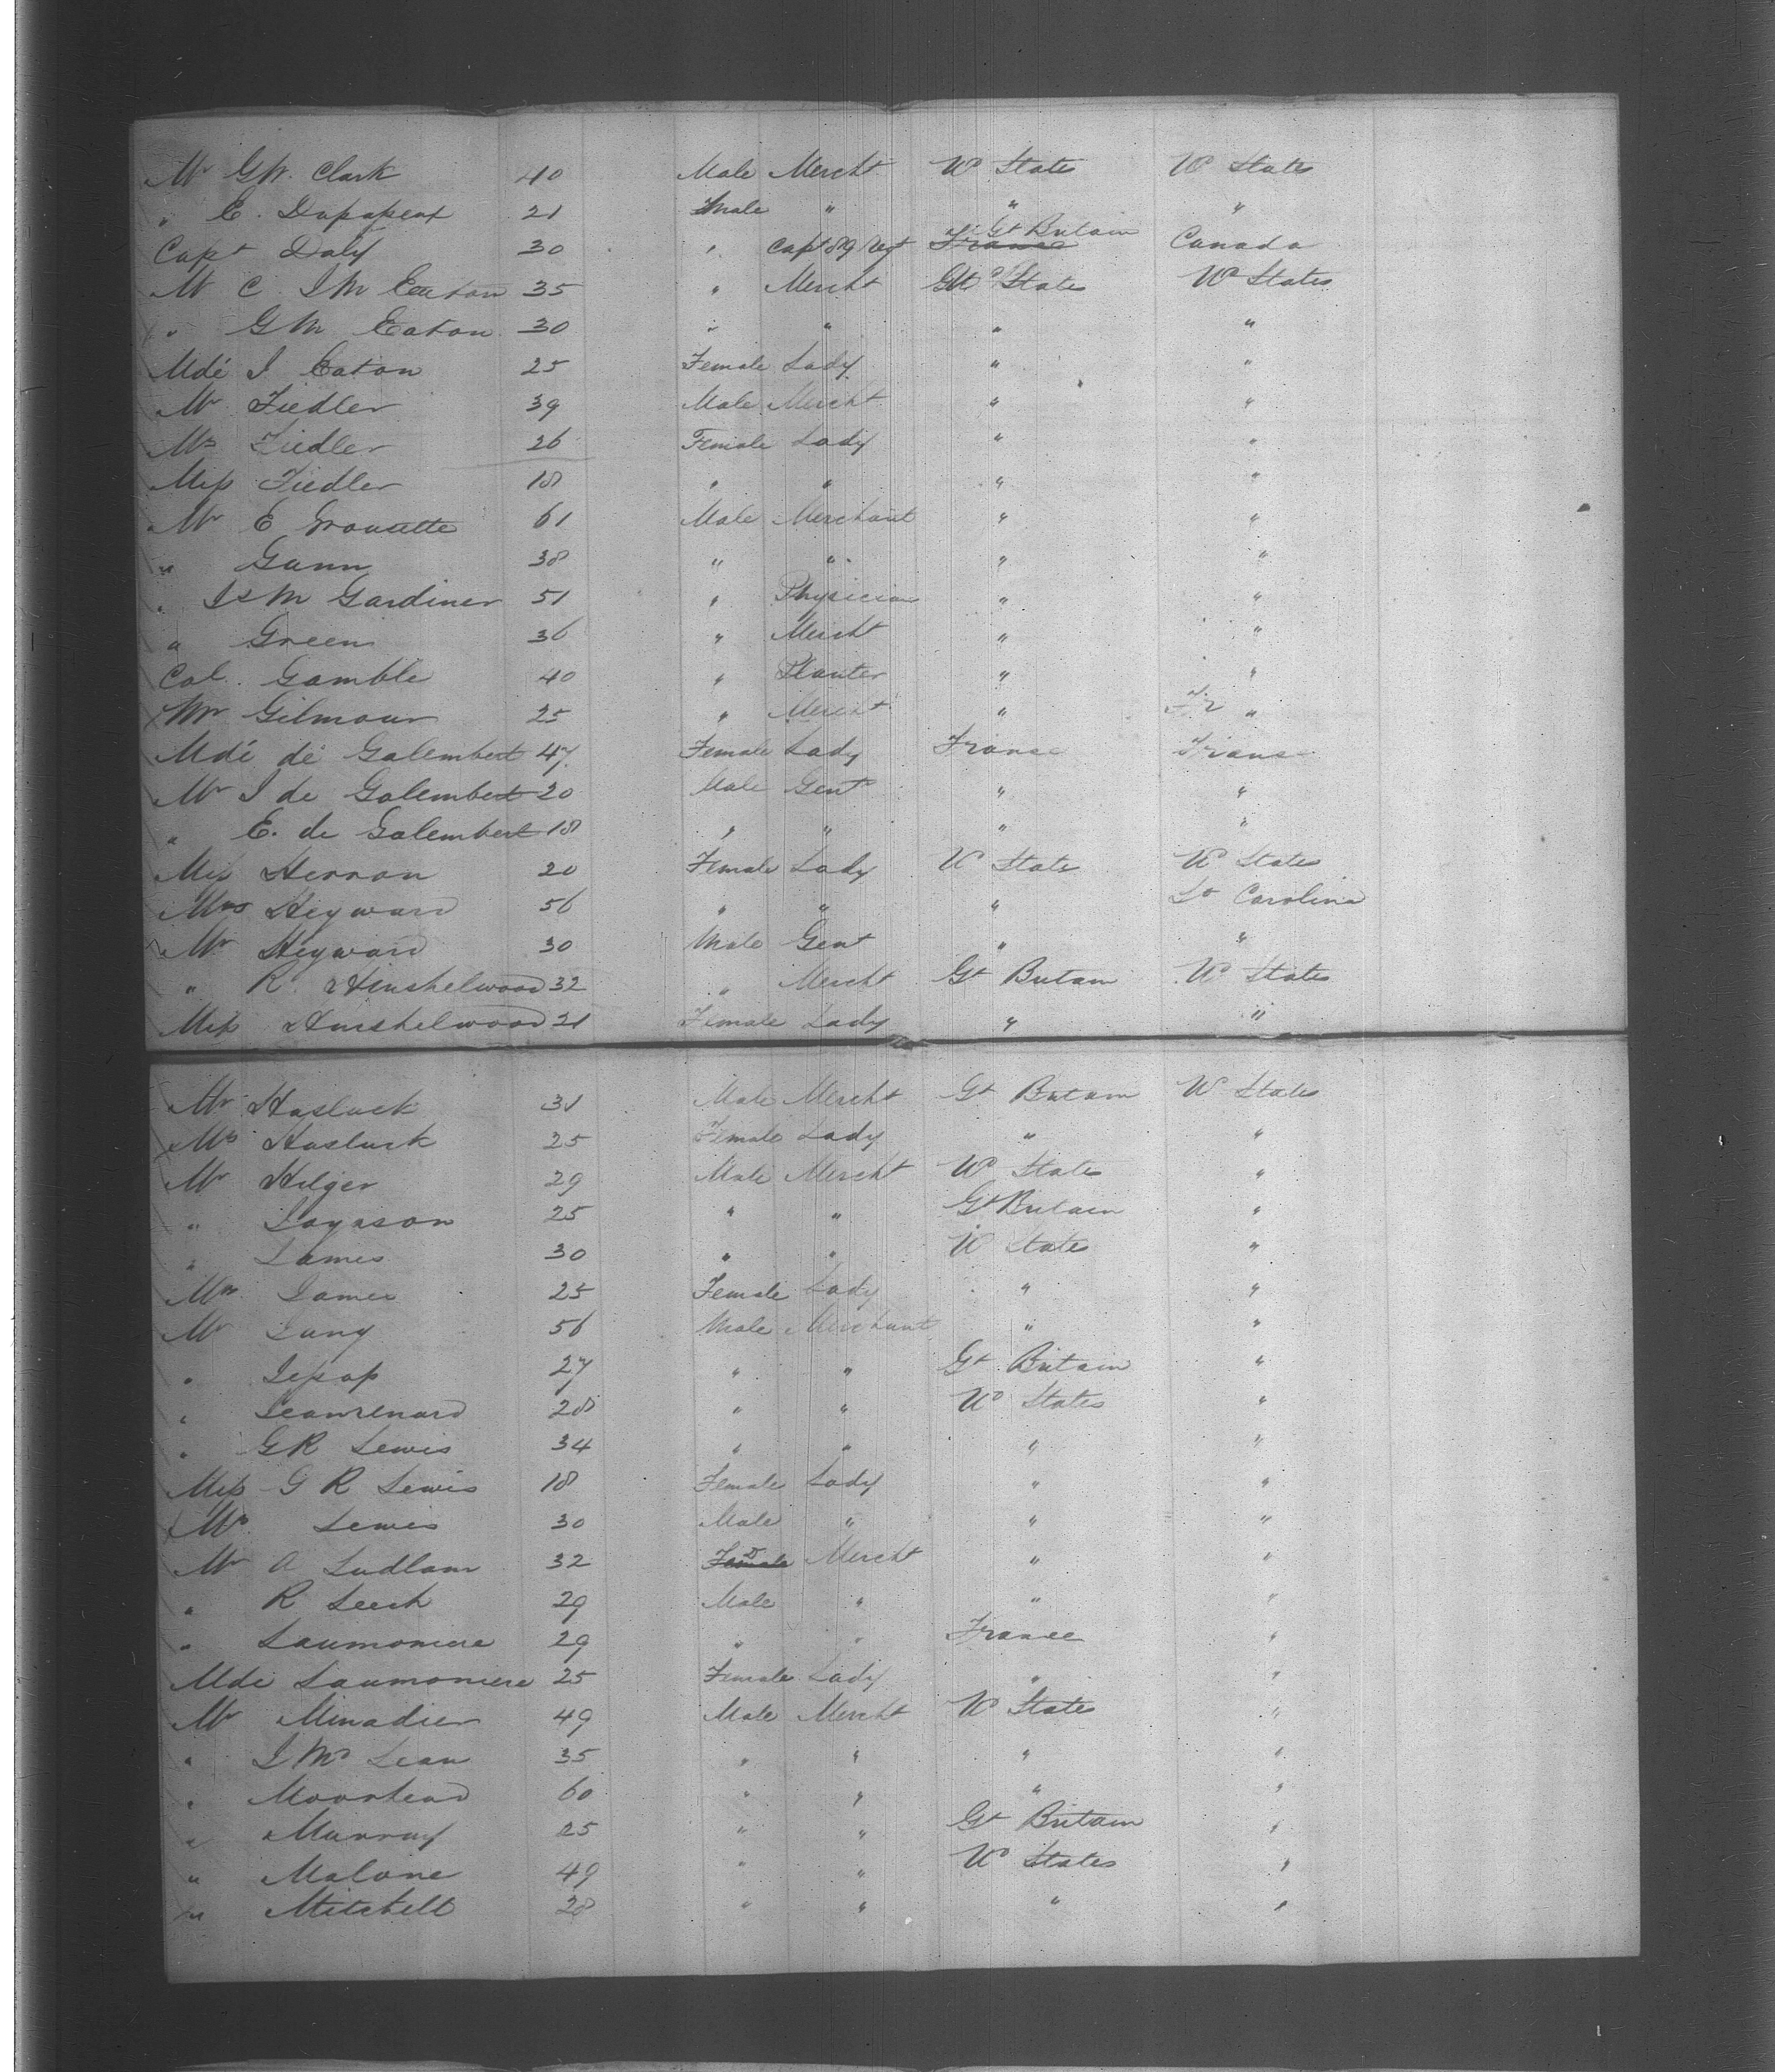 Mr GW. Clark 40 Male Mercht Ud States Ud States
" E. 21 Male " " "
Capt Daly 30 " Capt 89 Regt France Gt Britain Canada
Mr C I M Eaton 35 " Mercht Ud States Ud States
" G M Eaton 30 " " " "
Mde I Eaton 25 Female Lady " "
Mr Fiedler 39 Male Mercht " "
Ms Fiedler 26 Female Lady " "
Miss Fiedler 18 " " " "
Mr E 61 Male Merchant " "
" Gunn 38 " " " "
" Gardiner 51 " Physician " "
" Green 36 " Mercht " "
Col. Gamble 40 " Planter " "
Mr Gilmour 25 " Mercht " Fr "
Mde de Galembert 47 Female Lady France France
Mr I de Galembert 20 Male Gent " "
" E. de Galembert 18 " " " "
Miss Herron 20 Female Lady Ud States Ud States
Mrs Heyward 56 " " " So Carolina
Mr Heyward 30 Male Gent " "
" R. Hinshelwood 32 " Mercht Gt Britain Ud States
Miss Hinshelwood 21 Female Lady " "
Mr Hasluck 31 Male Mercht Gt Britain Ud States
Ms Hasluck 25 Female Lady " "
Mr Hilger 29 Male Mercht Ud States "
" 25 " " Gt Britain "
" James 30 " " Ud States "
Mrs James 25 Female Lady " "
Mr 56 Male Merchant " "
" Jessop 27 " " Gt Britain "
" Jeanrenard 28 " " Ud States "
" GR Lewis 34 " " " "
Miss G R Lewis 18 Female Lady " "
Mr Lewis 30 Male " " "
Mr A Ludlam 32 Female Do Mercht " "
" R Leech 29 Male " " "
" Laumoniere 29 " " France "
Mde Laumoniere 25 Female Lady " "
Mr Minadier 49 Male Mercht Ud States "
" I Mc Lean 35 " " " "
" Moorhead 60 " " " "
" Murray 25 " " Gt Britain "
" Malone 49 " " Ud States "
" Mitchell 28 " " " "